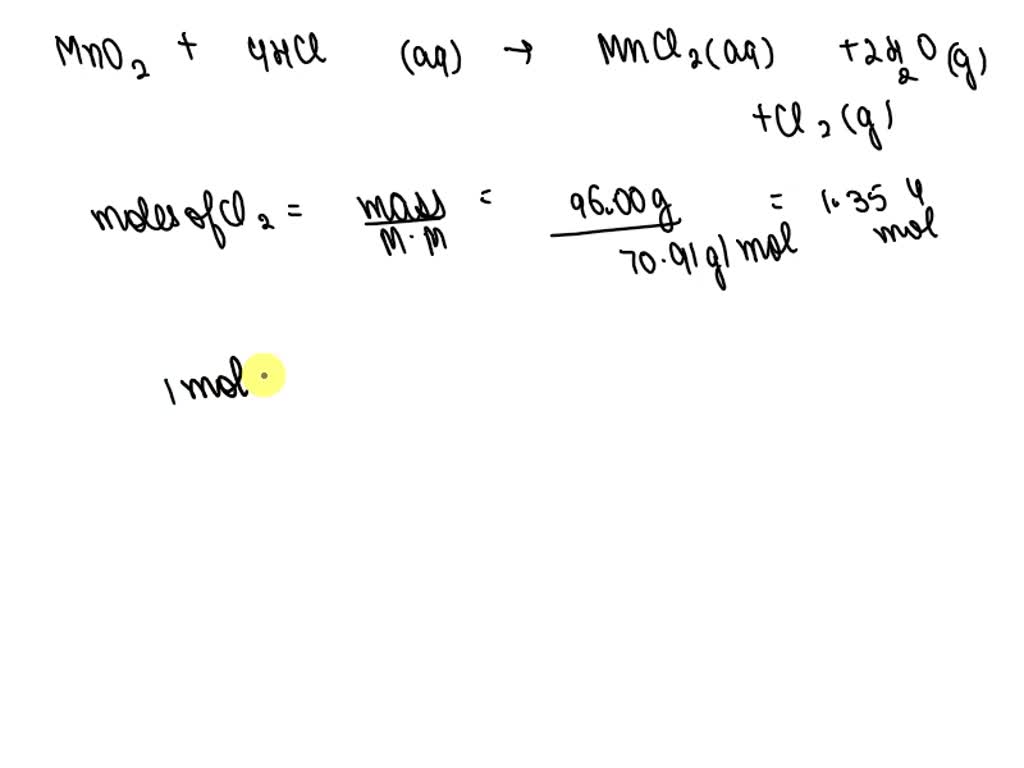 MnO₂ + 4HCl (aq) → MnCl₂(aq) + 2H₂O (g)
+ Cl₂(g)
moles of Cl₂ = mass / M·M = 96.00g / 70.91g/mol = 1.354 mol
1 mol